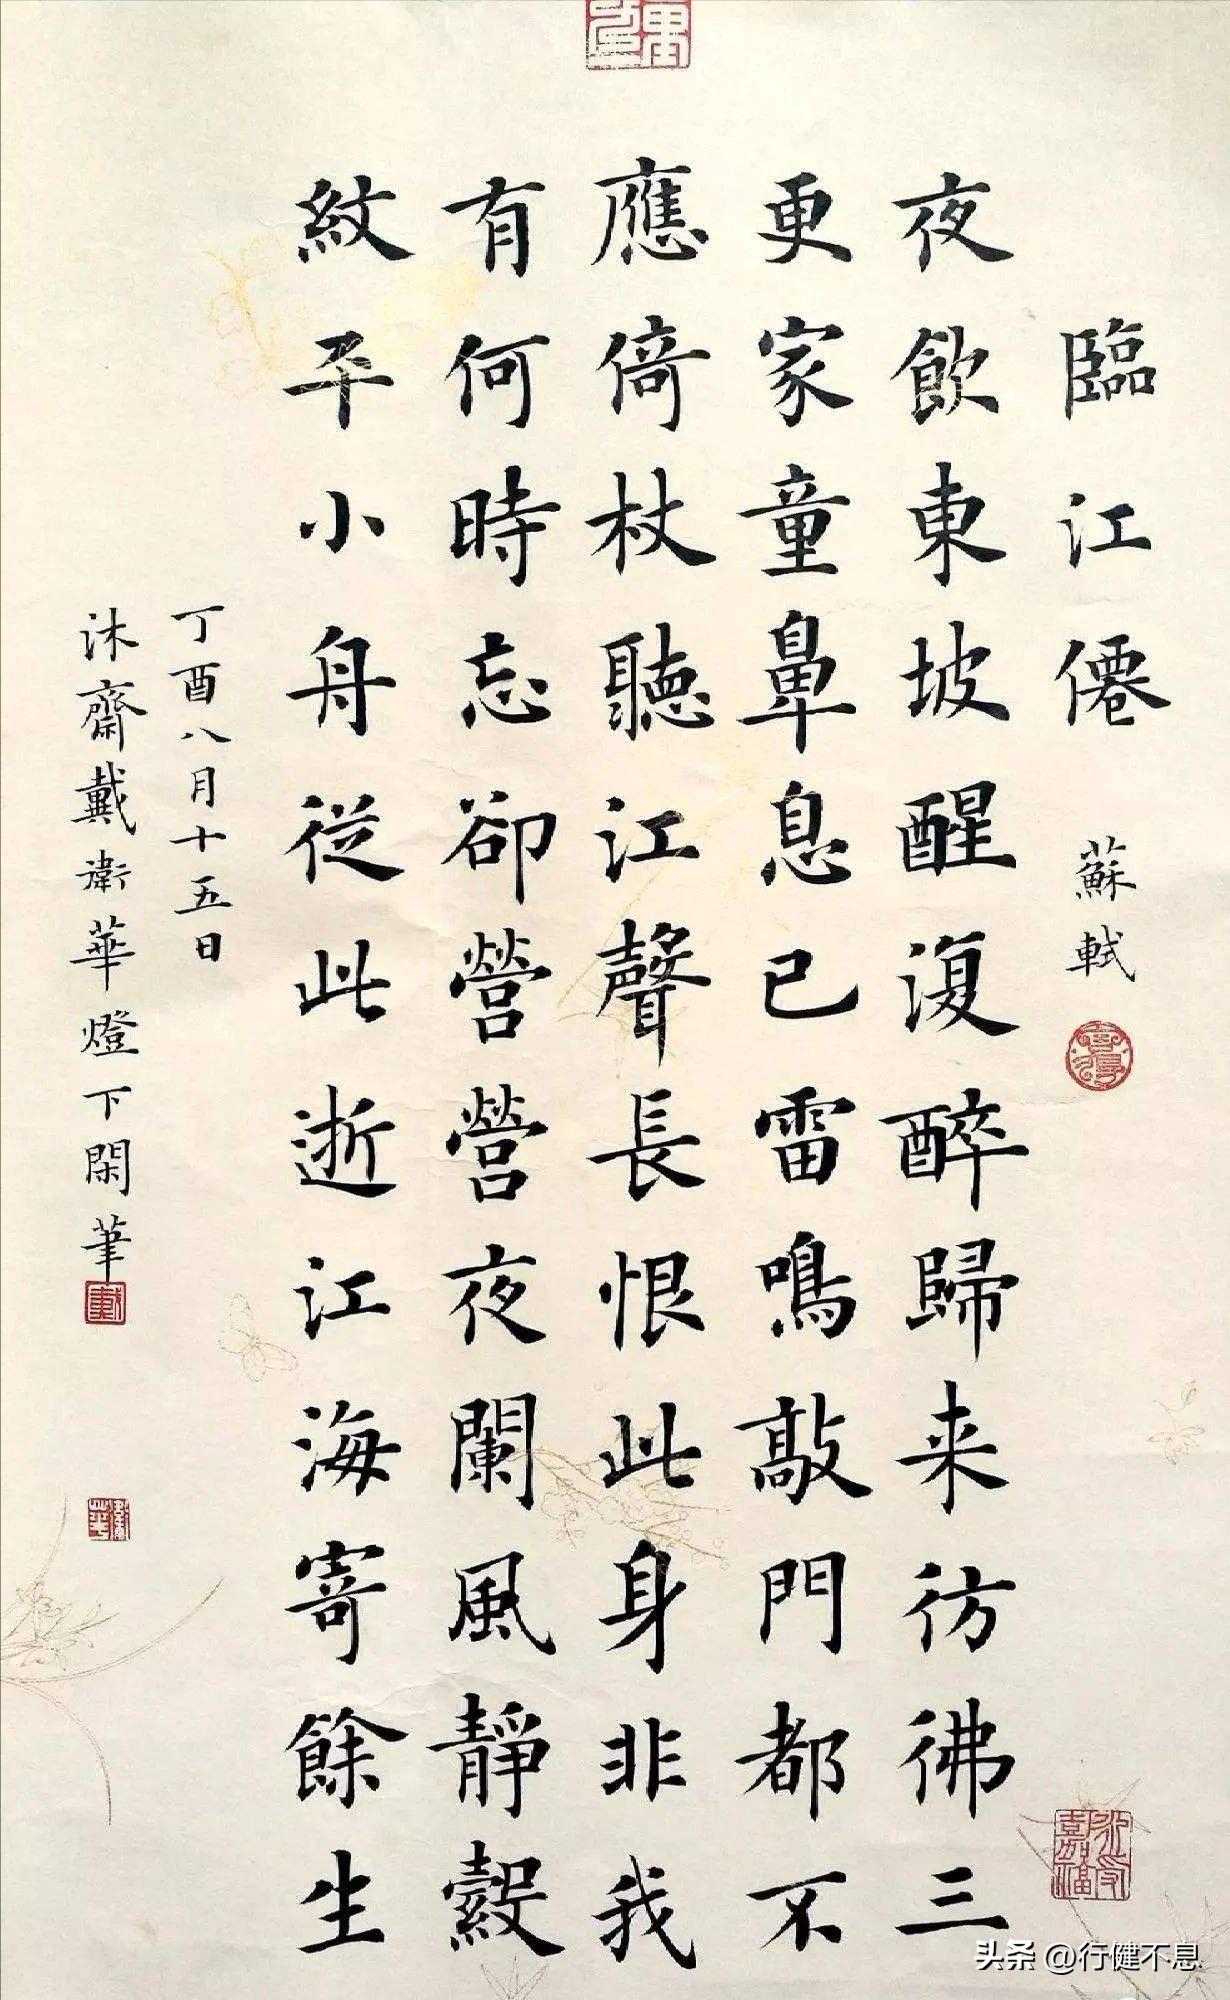 臨江僊 蘇軾
夜飲東坡醒復醉歸来彷彿三
更家童鼻息已雷鳴敲門都不
應倚杖聽江聲長恨此身非我
有何時忘卻營營夜闌風靜縠
紋平小舟從此逝江海寄餘生
丁酉八月十五日
沐齋戴衛華燈下閑筆
头条 @行健不息